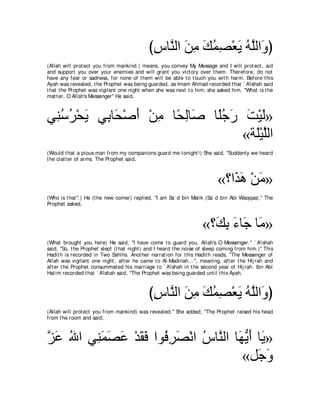 (وَاللَّهُ يَعْصِمُكَ مِنَ النَّاسِ)
(Allah will protect you from mankind.) means, you convey My Message and I will protect, aid
and support you over your enemies and will grant you victory over them. Therefore, do not
have any fear or sadness, for none of them will be able to touch you with harm. Before this
Ayah was revealed, the Prophet was being guarded, as Imam Ahmad recorded that `A'ishah said
that the Prophet was vigilant one night when she was next to him; she asked him, "What is the
matter, O Allah's Messenger'' He said,
«لَيْتَ رَجُلًا صَالِحًا مِنْ أَصْحَابِي يَحْرُسُنِي
اللَّيْلَة»
(Would that a pious man from my companions guard me tonight!) She said, "Suddenly we heard
the clatter of arms. The Prophet said,
«مَنْ هَذَا؟»
(Who is that'') He (the new comer) replied, "I am Sa`d bin Malik (Sa`d bin Abi Waqqas).'' The
Prophet asked,
«مَا جَاءَ بِكَ؟»
(What brought you here) He said, "I have come to guard you, Allah's O Messenger.'' `A'ishah
said, "So, the Prophet slept (that night) and I heard the noise of sleep coming from him.)'' This
Hadith is recorded in Two Sahihs. Another narration for this Hadith reads, "The Messenger of
Allah was vigilant one night, after he came to Al-Madinah...'', meaning, after the Hijrah and
after the Prophet consummated his marriage to `A'ishah in the second year of Hijrah. Ibn Abi
Hatim recorded that `A'ishah said, "The Prophet was being guarded until this Ayah,
(وَاللَّهُ يَعْصِمُكَ مِنَ النَّاسِ)
(Allah will protect you from mankind) was revealed.'' She added; "The Prophet raised his head
from the room and said;
«يَا أَيُّهَا النَّاسُ انْصَرِفُوا فَقَدْ عَصَمَنِي اللهُ عَزَّ
وَجَل»